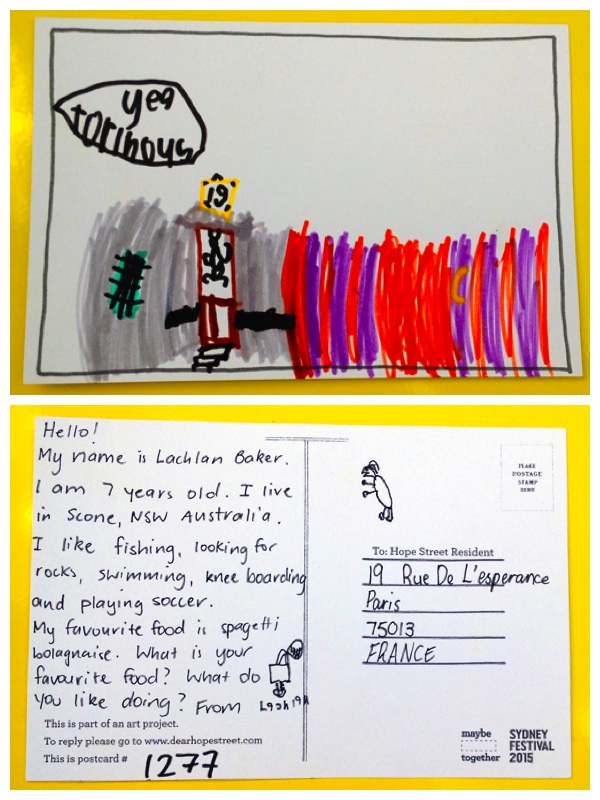 yea
19
Hello!
My name is Lachlan Baker.
I am 7 years old. I live
in Scone, NSW Australia.
I like fishing, looking for
rocks, swimming, knee boarding
and playing soccer.
My favourite food is spagetti
bolagnaise. What is your
favourite food? What do
you like doing? From Lachlan
This is part of an art project.
To reply please go to www.dearhopestreet.com
This is postcard # 1277
PLACE
POSTAGE
STAMP
HERE
To: Hope Street Resident
19 Rue De L'esperance
Paris
75013
FRANCE
maybe
together
SYDNEY
FESTIVAL
2015